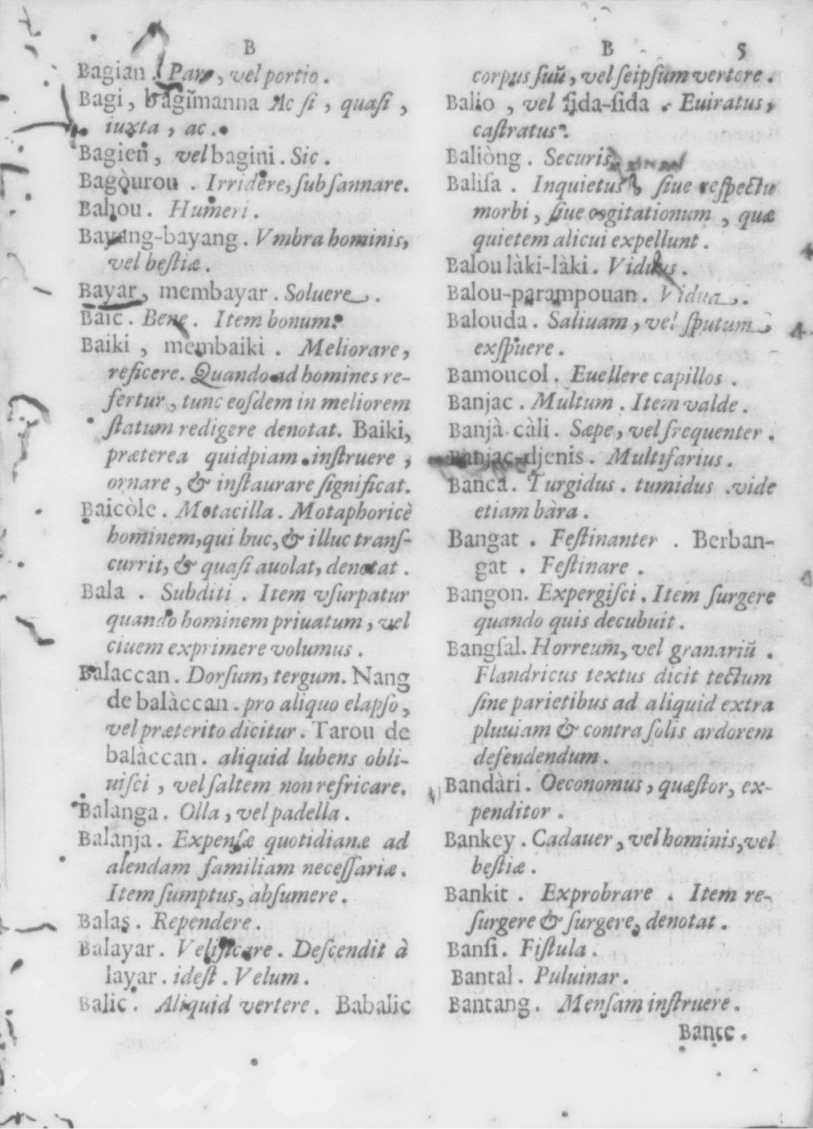 B
Bagian. Pars, vel portio.
Bagi, bagĩmanna Ac si, quasi,
iuxta, ac.
Bagien, vel bagini. Sic.
Bagòurou. Irridere, subsannare.
Bahou. Humeri.
Bayang-bayang. Vmbra hominis,
vel bestiæ.
Bayar, membayar. Soluere.
Baic. Bene. Item bonum.
Baiki, membaiki. Meliorare,
reficere. Quando ad homines re-
fertur, tunc eosdem in meliorem
statum redigere denotat. Baiki,
præterea quidpiam instruere,
ornare, & instaurare significat.
Baicòle. Motacilla. Motaphoricè
hominem, qui huc, & illuc trans-
currit, & quasi auolat, denotat.
Bala. Subditi. Item vsurpatur
quando hominem priuatum, vel
ciuem exprimere volumus.
Balaccan. Dorsum, tergum. Nang
de balàccan. pro aliquo elapso,
vel præterito dicitur. Tarou de
balàccan. aliquid lubens obli-
uisci, vel saltem non refricare.
Balanga. Olla, vel padella.
Balanja. Expensæ quotidianæ ad
alendam familiam necessariæ.
Item sumptus, absumere.
Balas. Rependere.
Balayar. Velificare. Descendit à
layar. idest. Velum.
Balic. Aliquid vertere. Babalic
B 5
corpus suũ, vel seipsum vertere.
Balio, vel sida-sida. Euiratus,
castratus.
Baliòng. Securis
Balisa. Inquietus, siue respectu
morbi, siue cogitationum, quæ
quietem alicui expellunt.
Balou làki-làki. Viduus.
Balou-parampouan. Vidua.
Balouda. Saliuam, vel sputum
exspuere.
Bamoucol. Euellere capillos.
Banjac. Multum. Item valde.
Banjà càli. Sæpe, vel frequenter.
Banjac-djenis. Multifarius.
Banca. Turgidus. tumidus. vide
etiam bàra.
Bangat. Festinanter. Berban-
gat. Festinare.
Bangon. Expergisci. Item surgere
quando quis decubuit.
Bangsal. Horreum, vel granariũ.
Flandricus textus dicit tectum
sine parietibus ad aliquid extra
pluuiam & contra solis ardorem
defendendum.
Bandàri. Oeconomus, quæstor, ex-
penditor.
Bankey. Cadauer, vel hominis, vel
bestiæ.
Bankit. Exprobrare. Item re-
surgere & surgere, denotat.
Bansi. Fistula.
Bantal. Puluinar.
Bantang. Mensam instruere.
Bante.